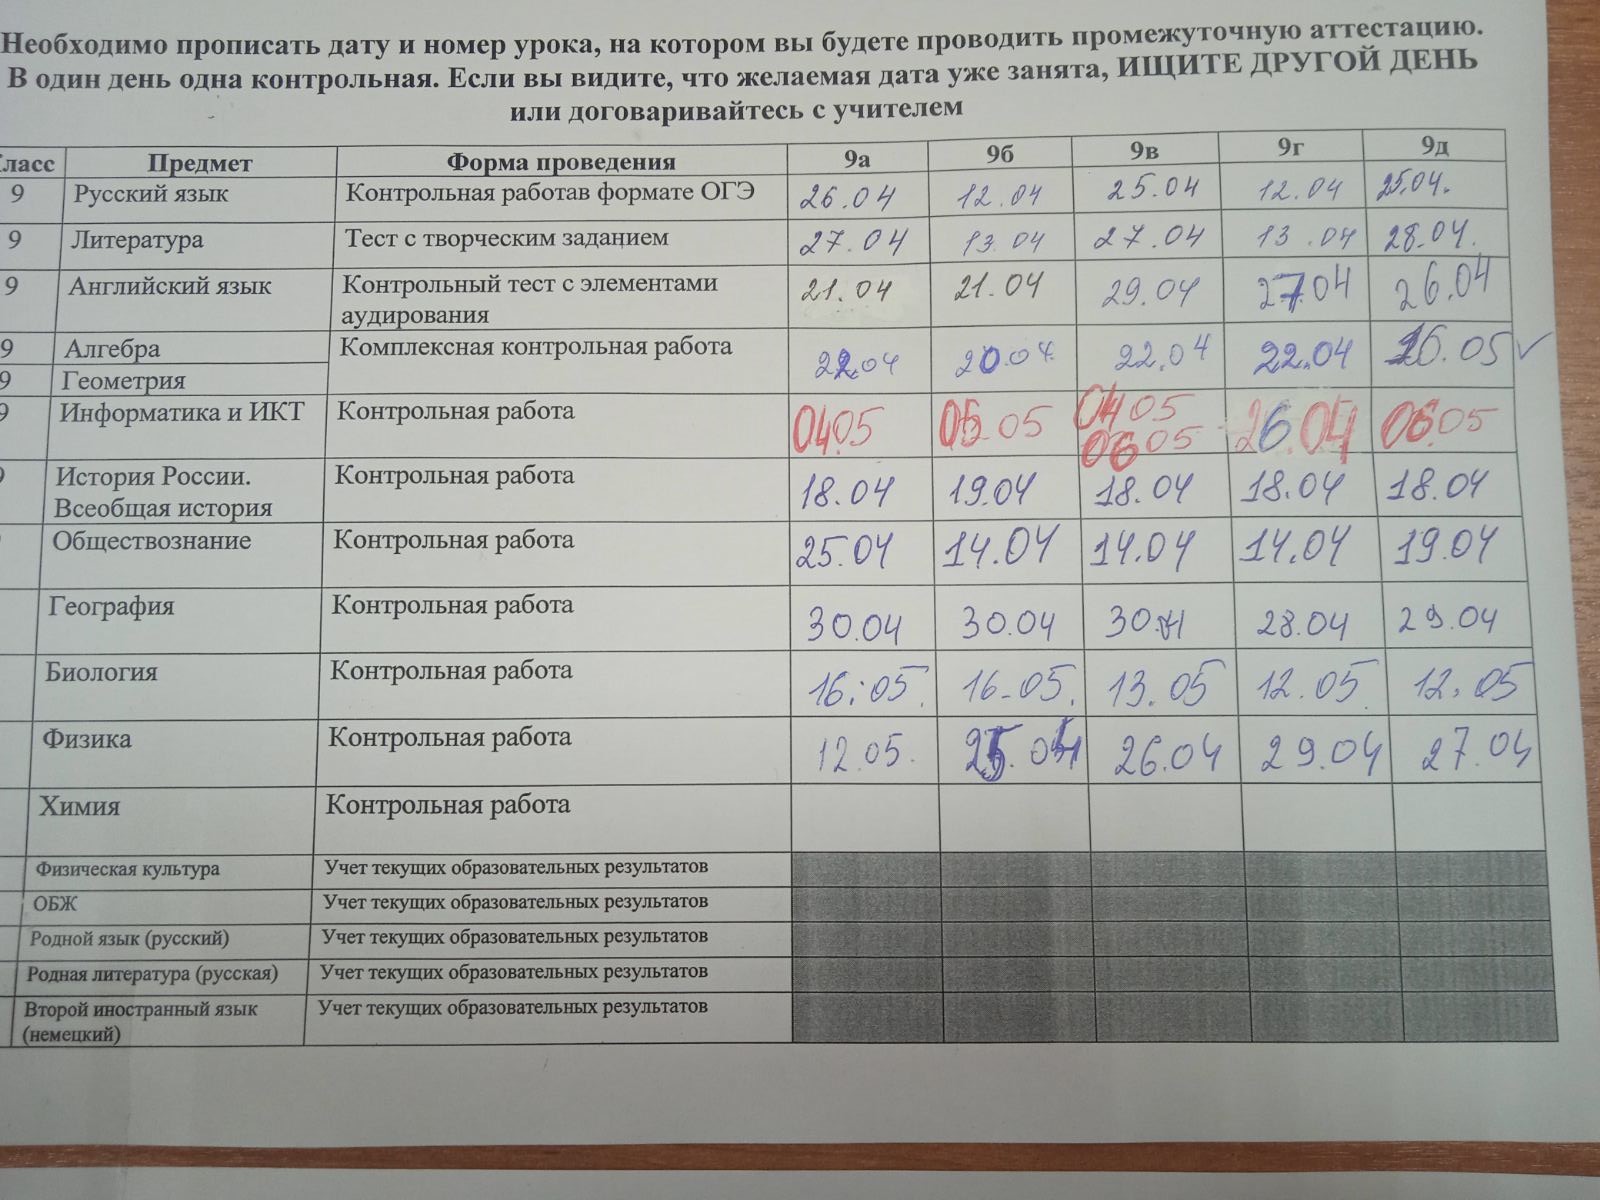 Необходимо прописать дату и номер урока, на котором вы будете проводить промежуточную аттестацию.
В один день одна контрольная. Если вы видите, что желаемая дата уже занята, ИЩИТЕ ДРУГОЙ ДЕНЬ
или договаривайтесь с учителем
ласс Предмет Форма проведения 9а 9б 9в 9г 9д
9 Русский язык Контрольная работав формате ОГЭ 26.04 12.04 25.04 12.04 25.04.
9 Литература Тест с творческим заданием 27.04 13.04 27.04 13.04 28.04.
9 Английский язык Контрольный тест с элементами 21.04 21.04 29.04 27.04 26.04
аудирования
9 Алгебра Комплексная контрольная работа 22.04 20.04 22.04 22.04 .05
9 Геометрия
9 Информатика и ИКТ Контрольная работа 04.05 05.05 04.05 26.04 06.05
06.05
История России. Контрольная работа 18.04 19.04 18.04 18.04 18.04
Всеобщая история
Обществознание Контрольная работа 25.04 14.04 14.04 14.04 19.04
География Контрольная работа 30.04 30.04 30.04 28.04 29.04
Биология Контрольная работа 16.05. 16-05. 13.05 12.05. 12.05
Физика Контрольная работа 12.05. 25.04 26.04 29.04 27.04
Химия Контрольная работа
Физическая культура Учет текущих образовательных результатов
ОБЖ Учет текущих образовательных результатов
Родной язык (русский) Учет текущих образовательных результатов
Родная литература (русская) Учет текущих образовательных результатов
Второй иностранный язык Учет текущих образовательных результатов
(немецкий)